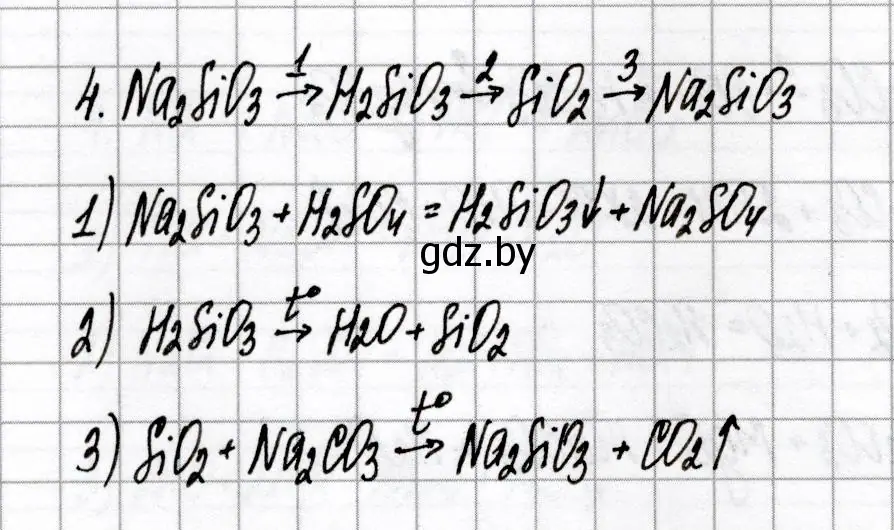 4. Na₂SiO₃ →¹ H₂SiO₃ →² SiO₂ →³ Na₂SiO₃
1) Na₂SiO₃ + H₂SO₄ = H₂SiO₃↓ + Na₂SO₄
gdz.by
2) H₂SiO₃ →t° H₂O + SiO₂
3) SiO₂ + Na₂CO₃ →t° Na₂SiO₃ + CO₂↑